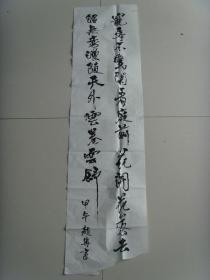 寵辱不驚閑看庭前花開花落去
留無意漫隨天外雲卷雲舒
甲午 書